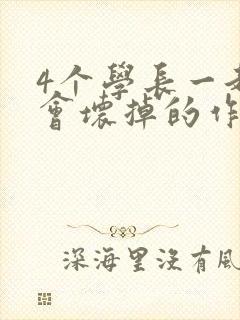 4个學長一
會壞掉的作
深海里沒有風